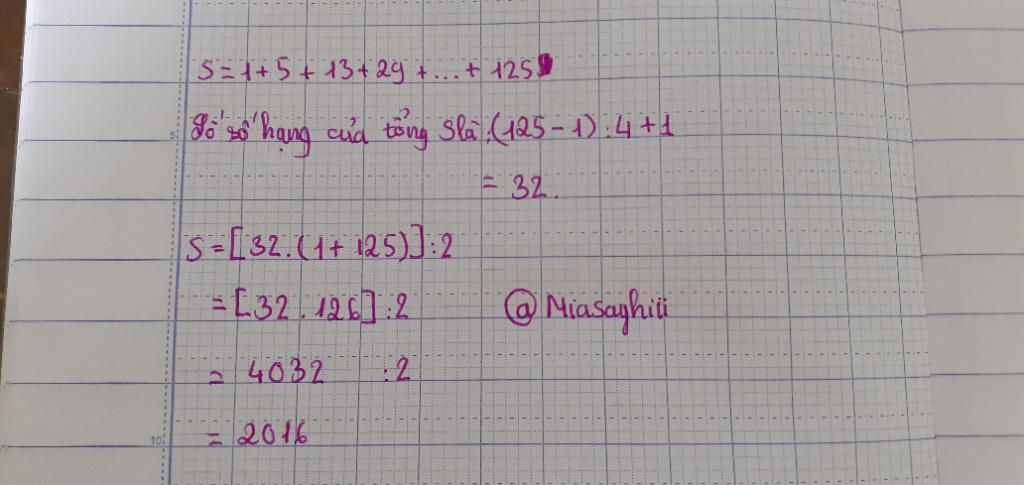 S = 1 + 5 + 13 + 29 + ... + 125
Số số hạng của tổng S là: (125 - 1) : 4 + 1
= 32.
S = [32.(1 + 125)] : 2
= [32 . 126] : 2
@Miasaghiii
= 4032 : 2
= 2016